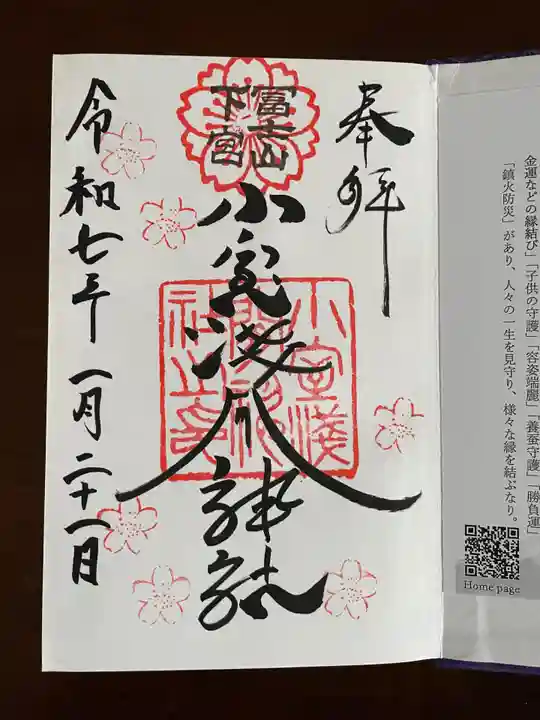 金運などの縁結び」「子供の守護」「容姿端麗」「養蚕守護」「勝負運」
「鎮火防災」があり、人々の一生を見守り、様々な縁を結ぶなり。
Home page
奉拝
富士山
下宮
小室浅間神社
小室浅
間神
社之印
令和七年一月二十一日